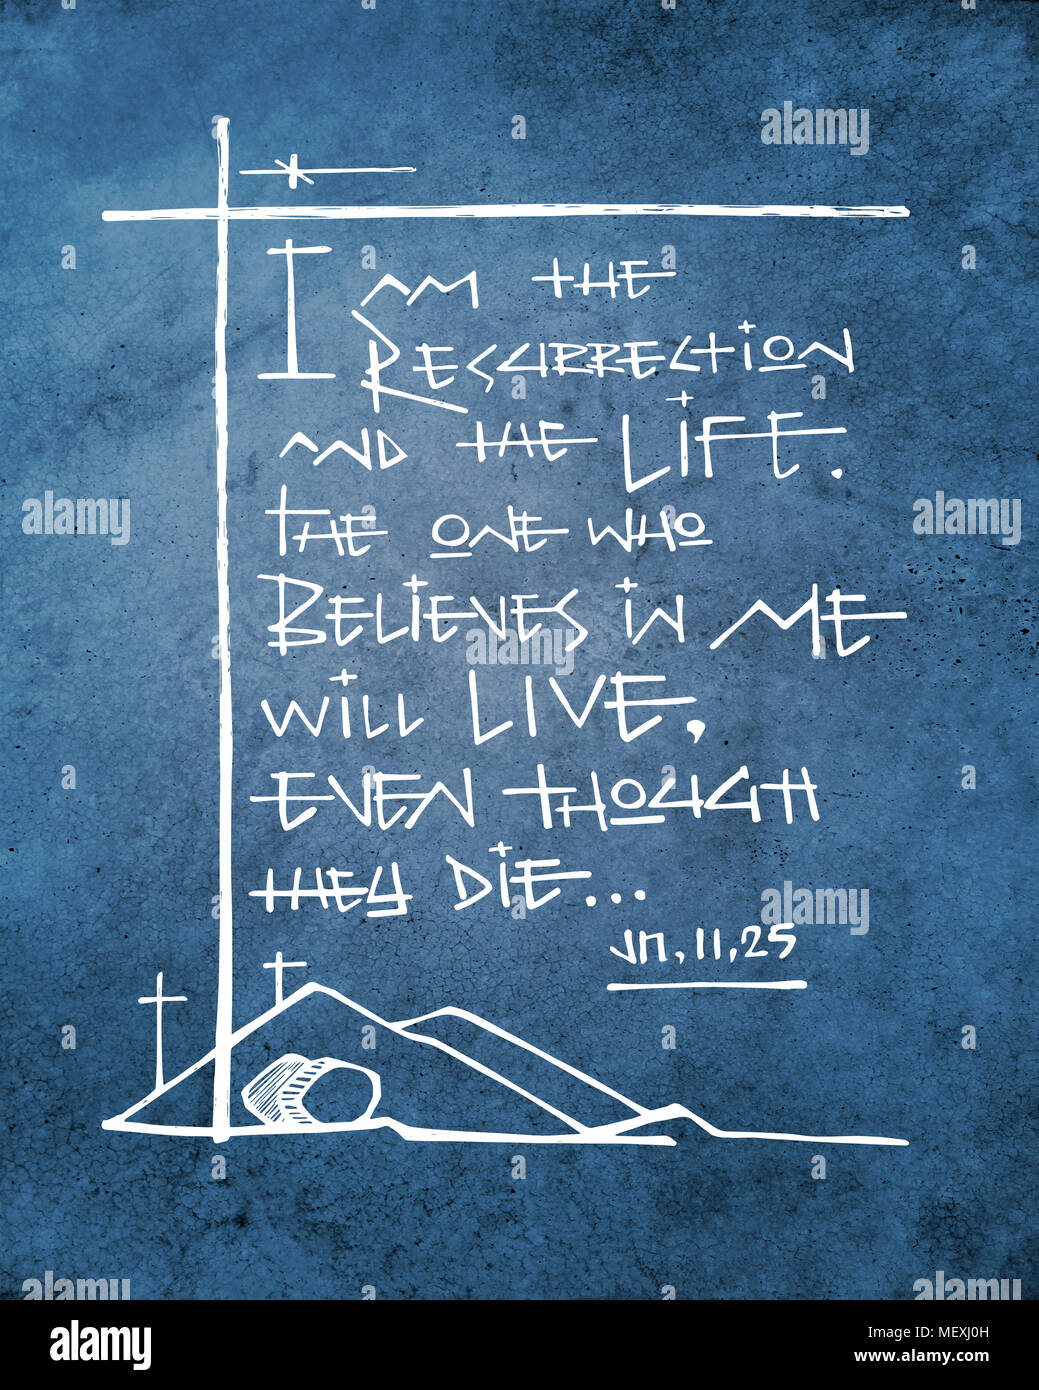 I AM THE
RESURRECTION
AND THE LiFE.
THE ONE WHO
BELiEVES iN ME
WiLL LIVE,
EVEN THOUGH
THEY DiE...
JN, 11, 25
a
alamy
a
a
a
a
a
alamy
a
alamy
a
alamy
a
a
a
a
alamy
a
a
a
a
alamy
a
alamy
alamy
Image ID: MEXJ0H
www.alamy.com